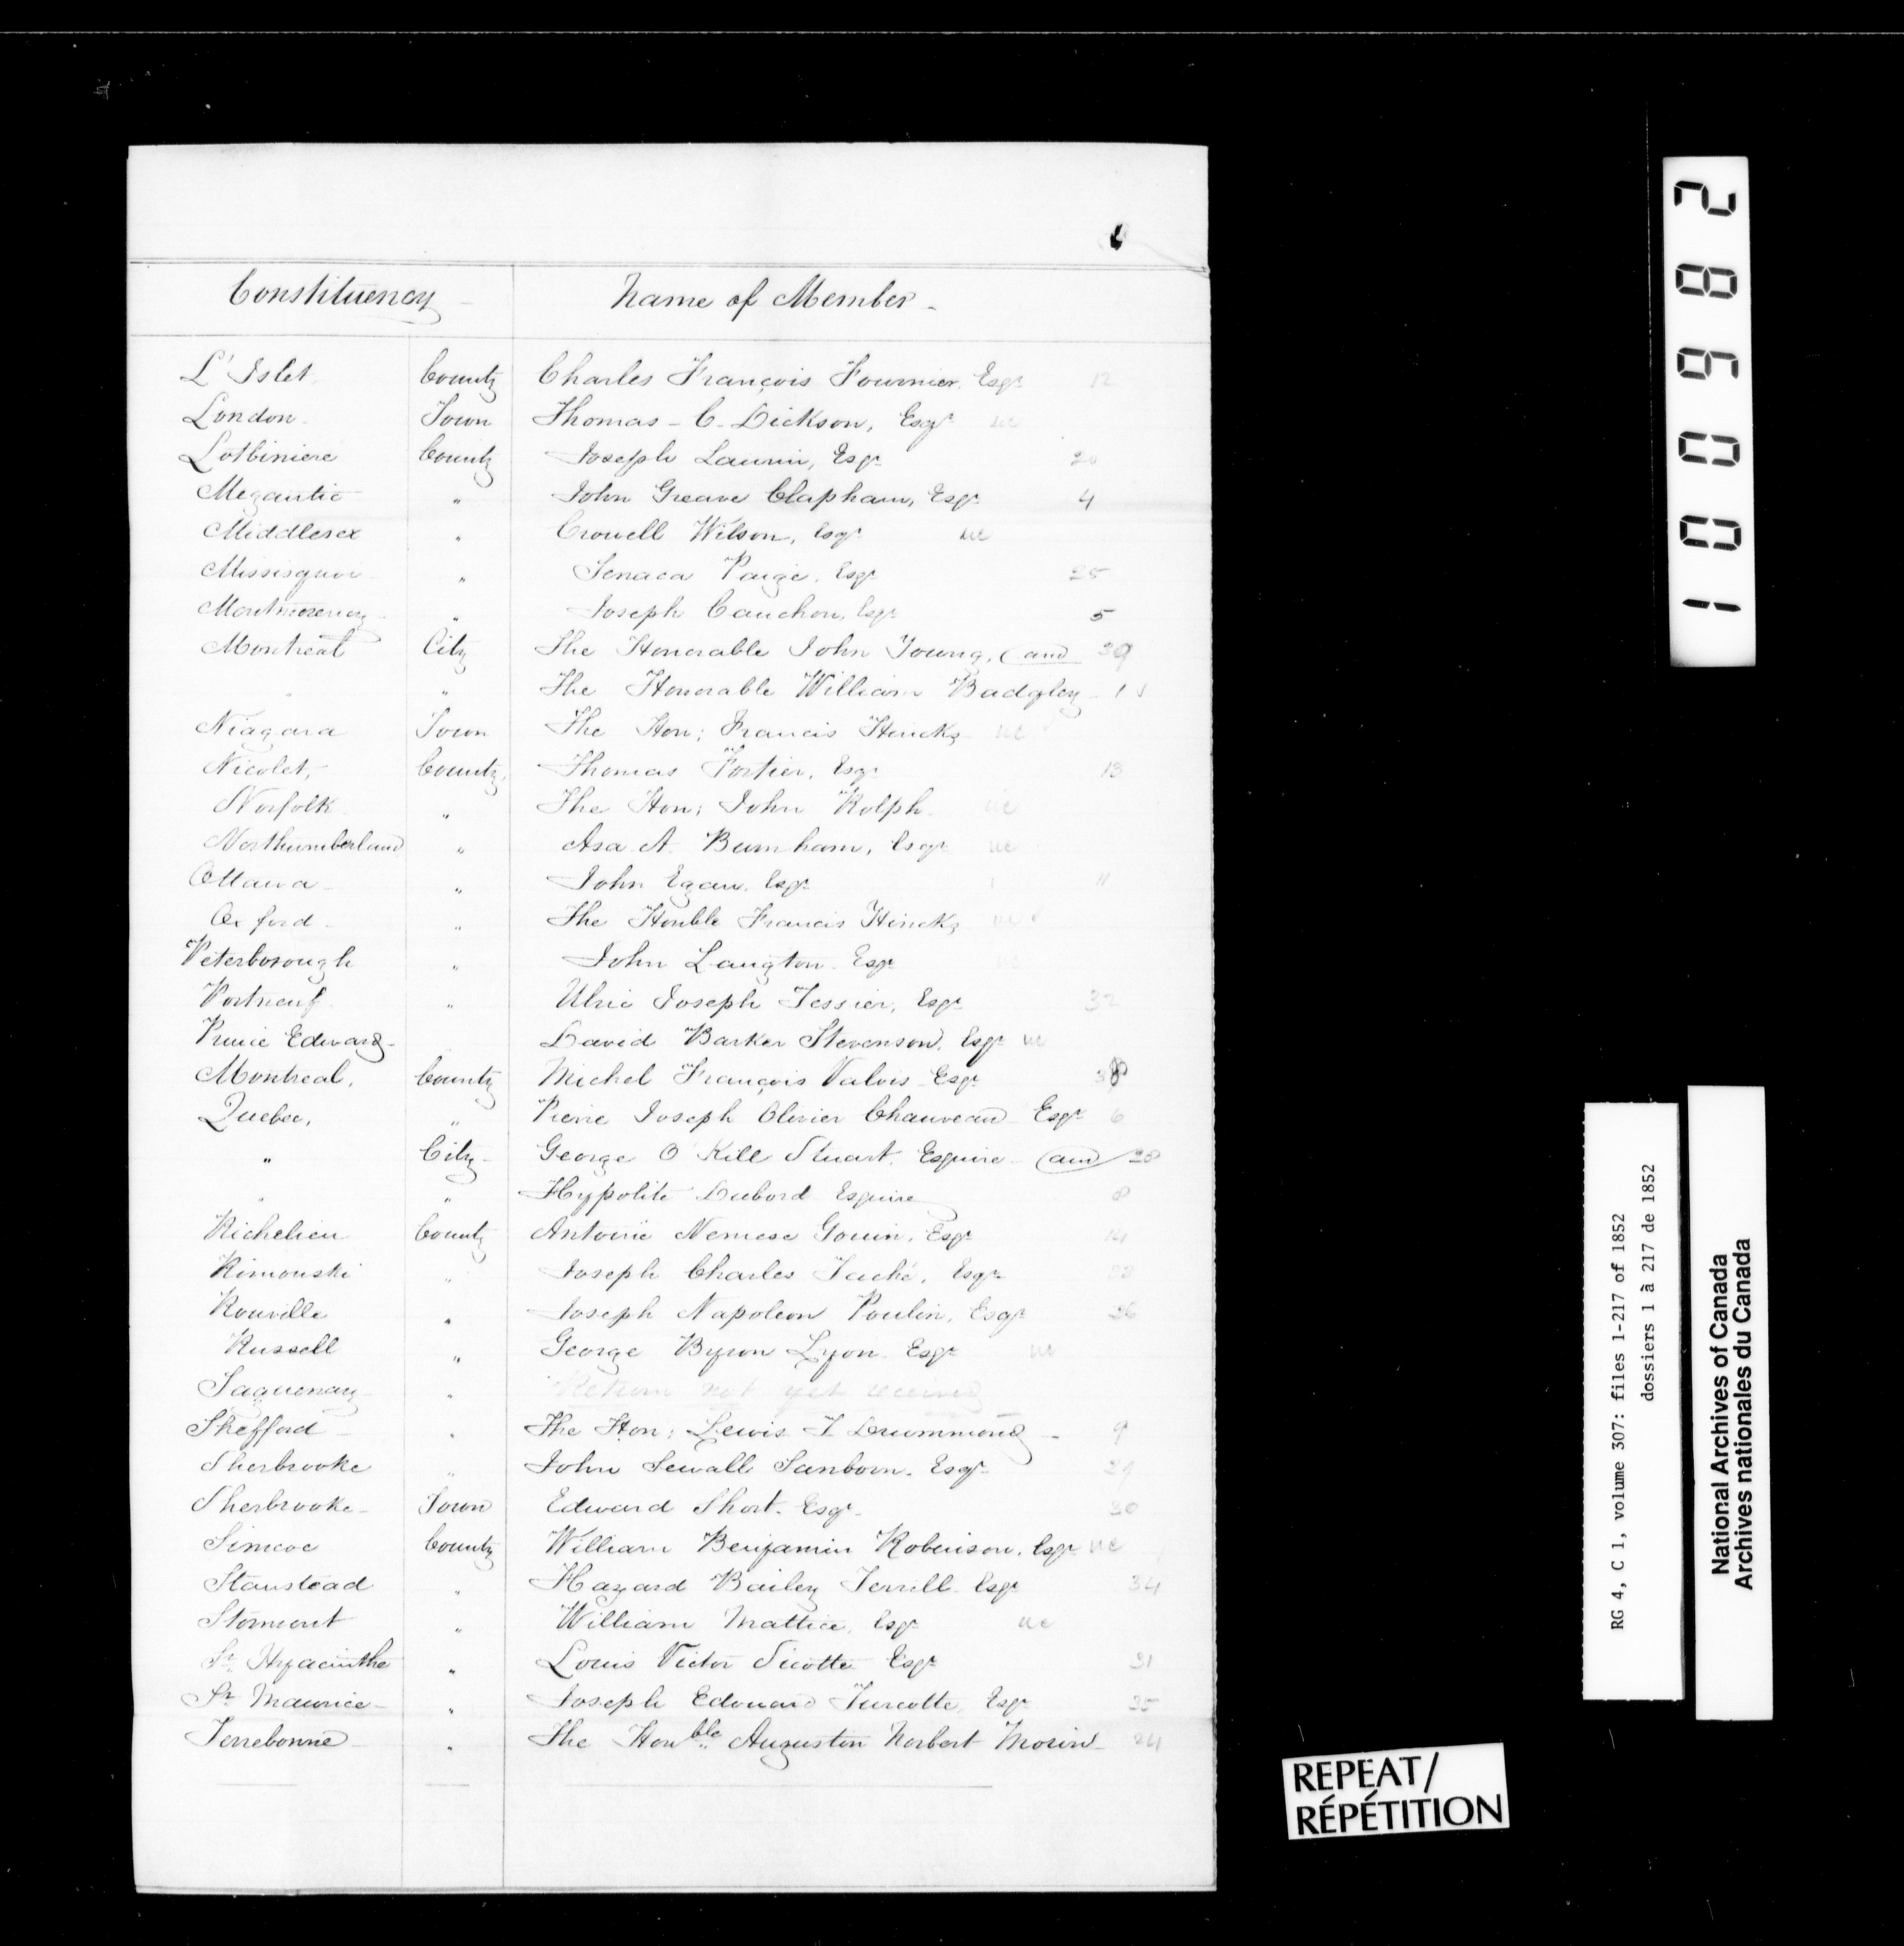 Constituency Name of Member
L' Islet County Charles François Fournier, Esqr 12
London Town Thomas C. Dickson, Esqr uc
Lotbiniere County Joseph Laurin, Esqr 20
Megantic " John Greave Clapham, Esqr 4
Middlesex " Crowell Wilson, Esqr uc
Missisquoi " Senaca Paige, Esqr 25
Montmorency " Joseph Cauchon, Esqr 5
Montreal City The Honorable John Young, (and 39
" " The Honorable William Badgley 1
Niagara Town The Hon; Francis Hincks uc
Nicolet, County, Thomas Fortier, Esqr 13
Norfolk " The Hon; John Rolph uc
Northumberland " Asa A. Burnham, Esqr uc
Ottawa " John Egan, Esqr 11
Oxford " The Honble Francis Hincks uc
Peterborough " John Langton Esqr uc
Portneuf " Ulric Joseph Tessier, Esqr 32
Prince Edward David Barker Stevenson, Esqr uc
Montreal, County Michel François Valois Esqr 38
Quebec, " Pierre Joseph Olivier Chauveau Esqr 6
" City George O Kill Stuart, Esquire (and
" " Hypolite Dubord Esquire 8
Richelieu County Antoine Nemese Gouin, Esqr 14
Rimouski " Joseph Charles Taché, Esqr
Rouville " Joseph Napoleon Poulin, Esqr 26
Russell " George Byron Lyon Esqr uc
Saguenay " Return not yet received
Shefford " The Hon; Lewis T Drummond 9
Sherbrooke " John Sewall Sanborn, Esqr 29
Sherbrooke Town Edward Short, Esqr 30
Simcoe County William Benjamin Robinson, Esqr uc
Stanstead " Hazard Bailey Terrill Esqr 34
Stormont " William Mattice, Esqr uc
St. Hyacinthe " Louis Victor Sicotte Esqr 31
St. Maurice " Joseph Edouard Turcotte, Esqr 35
Terrebonne " The Honble Augustin Norbert Morin 24
100982
RG 4, C 1, volume 307: files 1-217 of 1852
dossiers 1 à 217 de 1852
National Archives of Canada
Archives nationales du Canada
REPEAT/
RÉPÉTITION